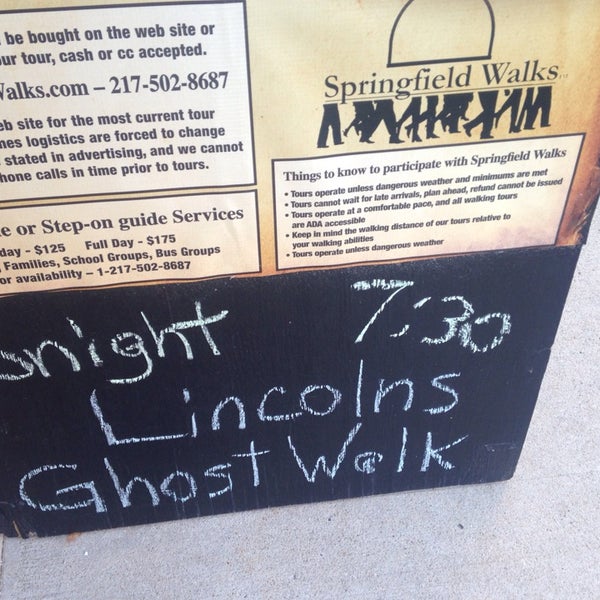 be bought on the web site or
our tour, cash or cc accepted.
Walks.com – 217-502-8687
web site for the most current tour
times logistics are forced to change
stated in advertising, and we cannot
phone calls in time prior to tours.
or Step-on guide Services
day - $125 Full Day - $175
Families, School Groups, Bus Groups
or availability – 1-217-502-8687
Springfield Walks
Things to know to participate with Springfield Walks
• Tours operate unless dangerous weather and minimums are met
• Tours cannot wait for late arrivals, plan ahead, refund cannot be issued
• Tours operate at a comfortable pace, and all walking tours
are ADA accessible
• Keep in mind the walking distance of our tours relative to
your walking abilities
• Tours operate unless dangerous weather
onight 7:30
Lincolns
Ghost Walk